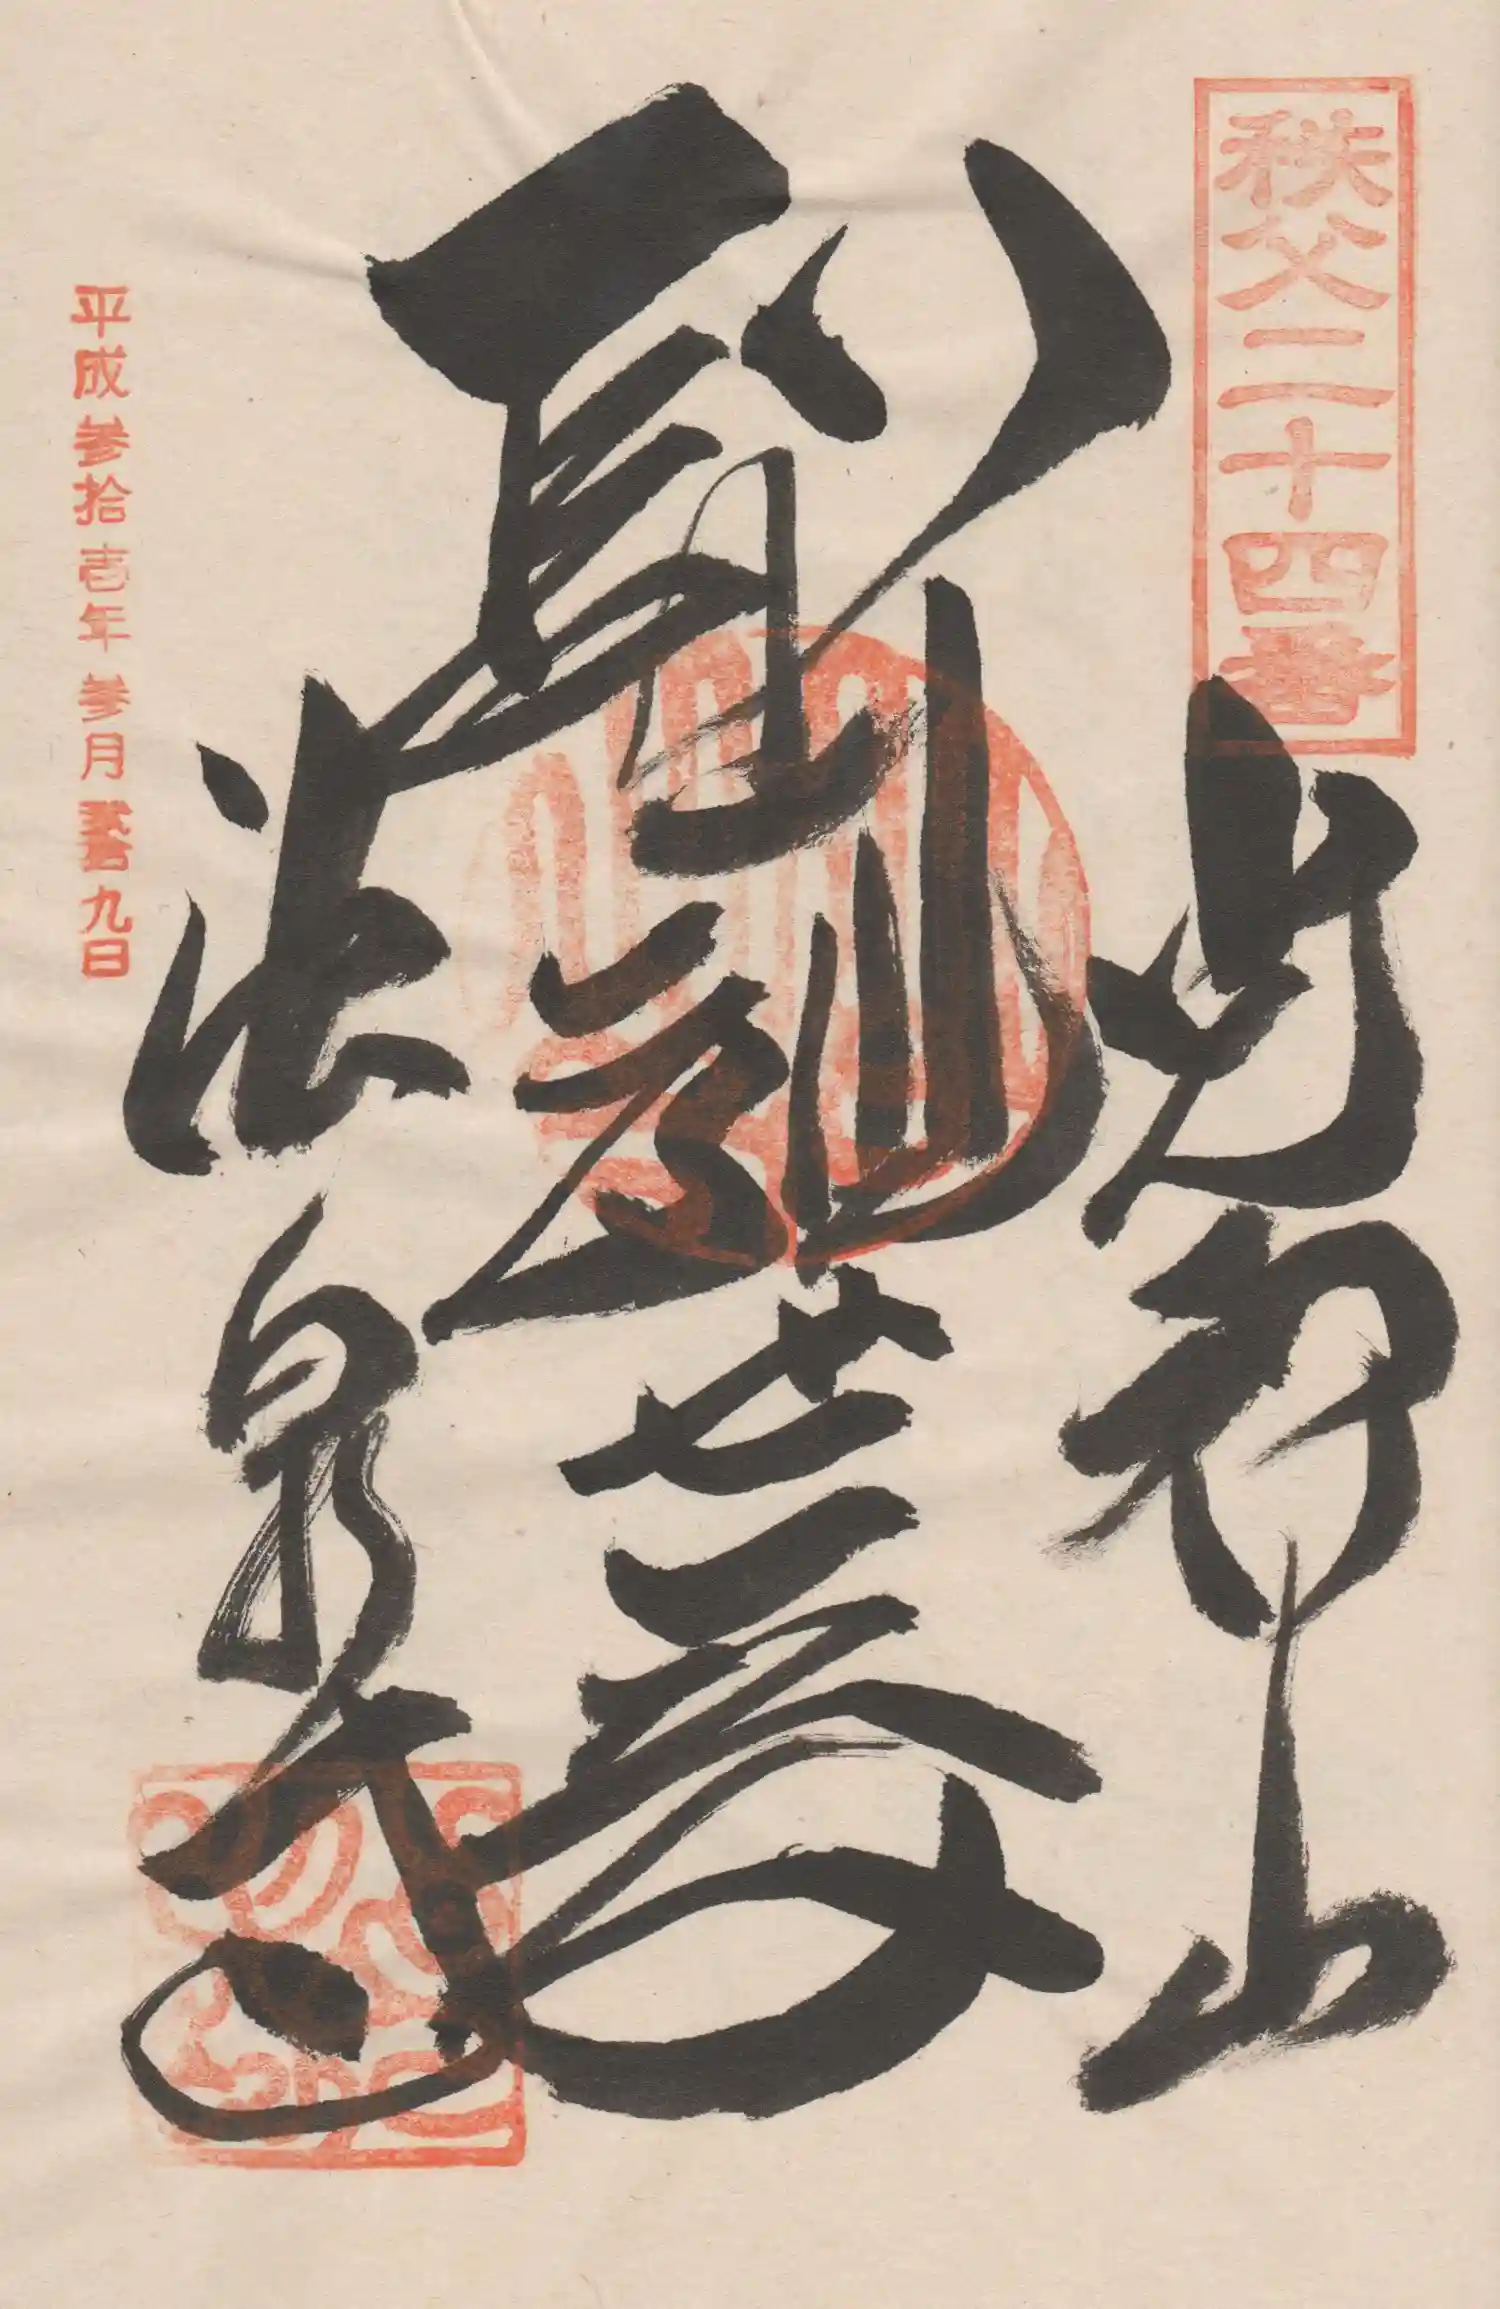 秩父二十四番
光智山
聖観世音
法泉寺
平成参拾壱年参月弐拾九日